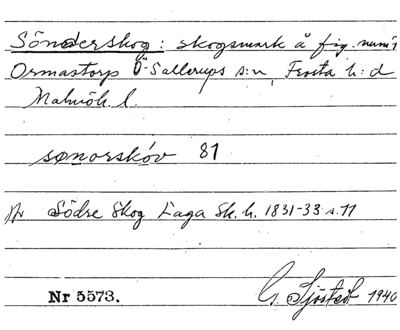 Sönderskog: skogsmark å fig. num 1
Ormastorp Ö. Sallerups s:n, Frosta h:d
Malmöh. l.
sønorskóv 81
Södre Skog Laga Sk. h. 1831-33 s. 11
Nr 5573. G. Sjöstedt 1940